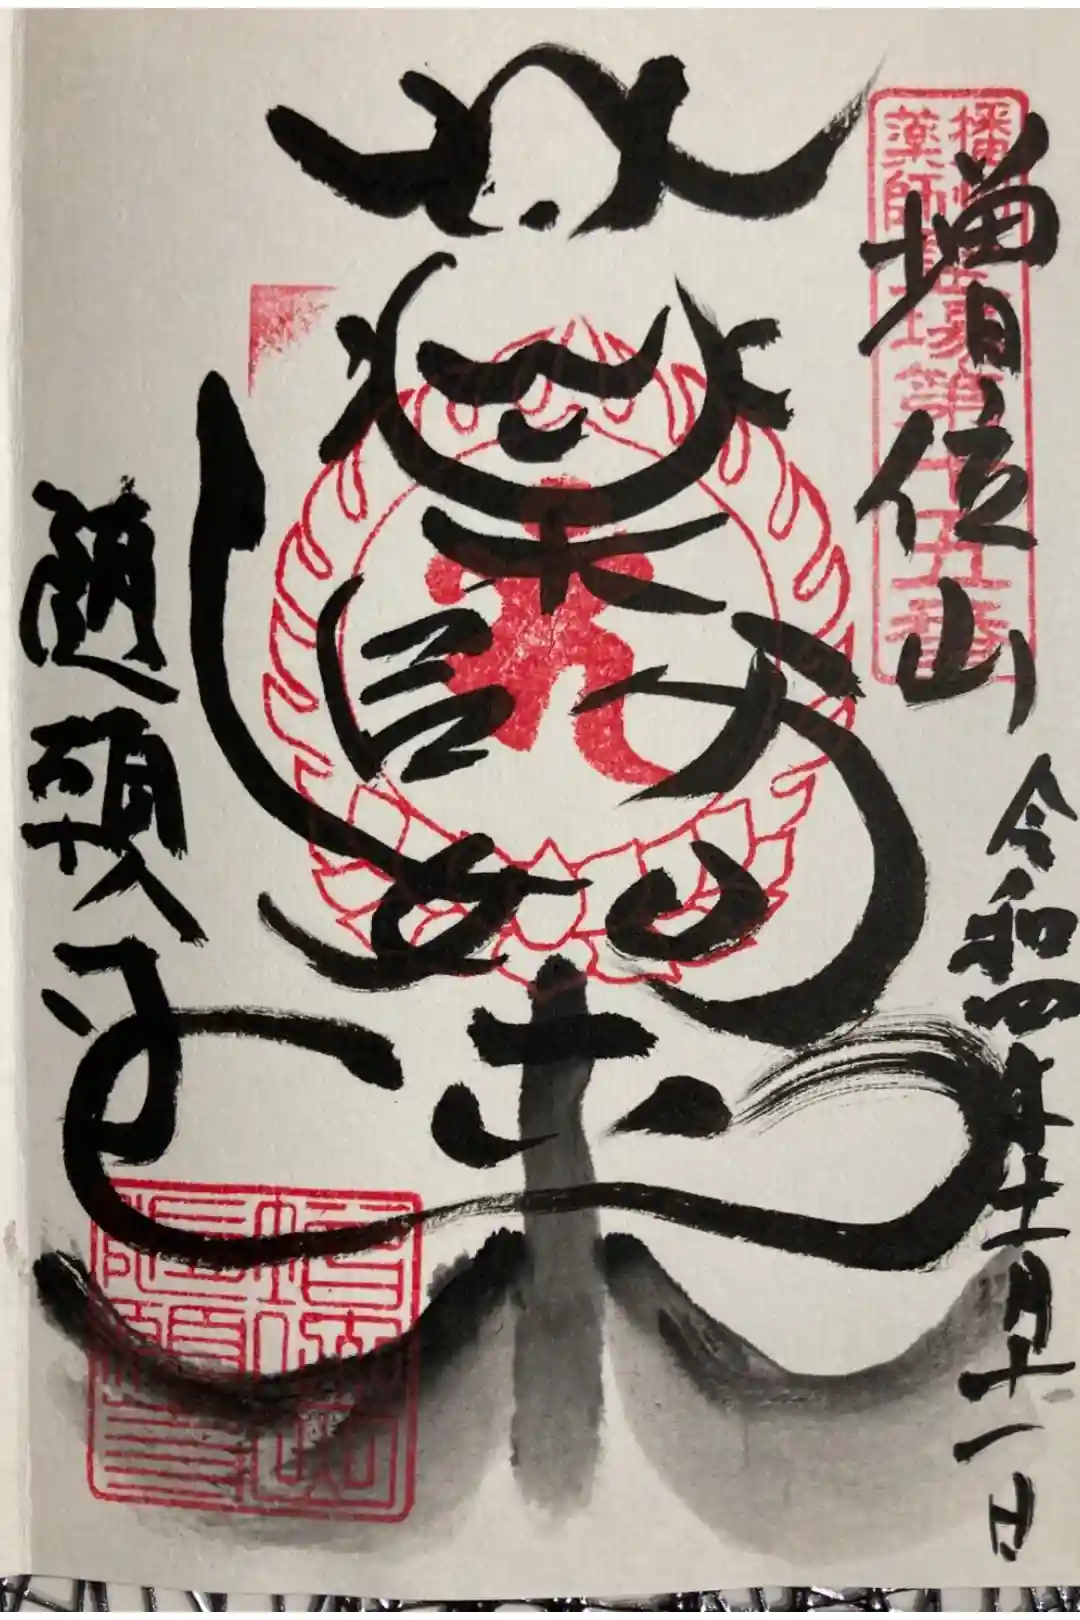 播州
薬師霊場第十五番
増位山
令和四年十二月十一日
薬師如来
随願寺